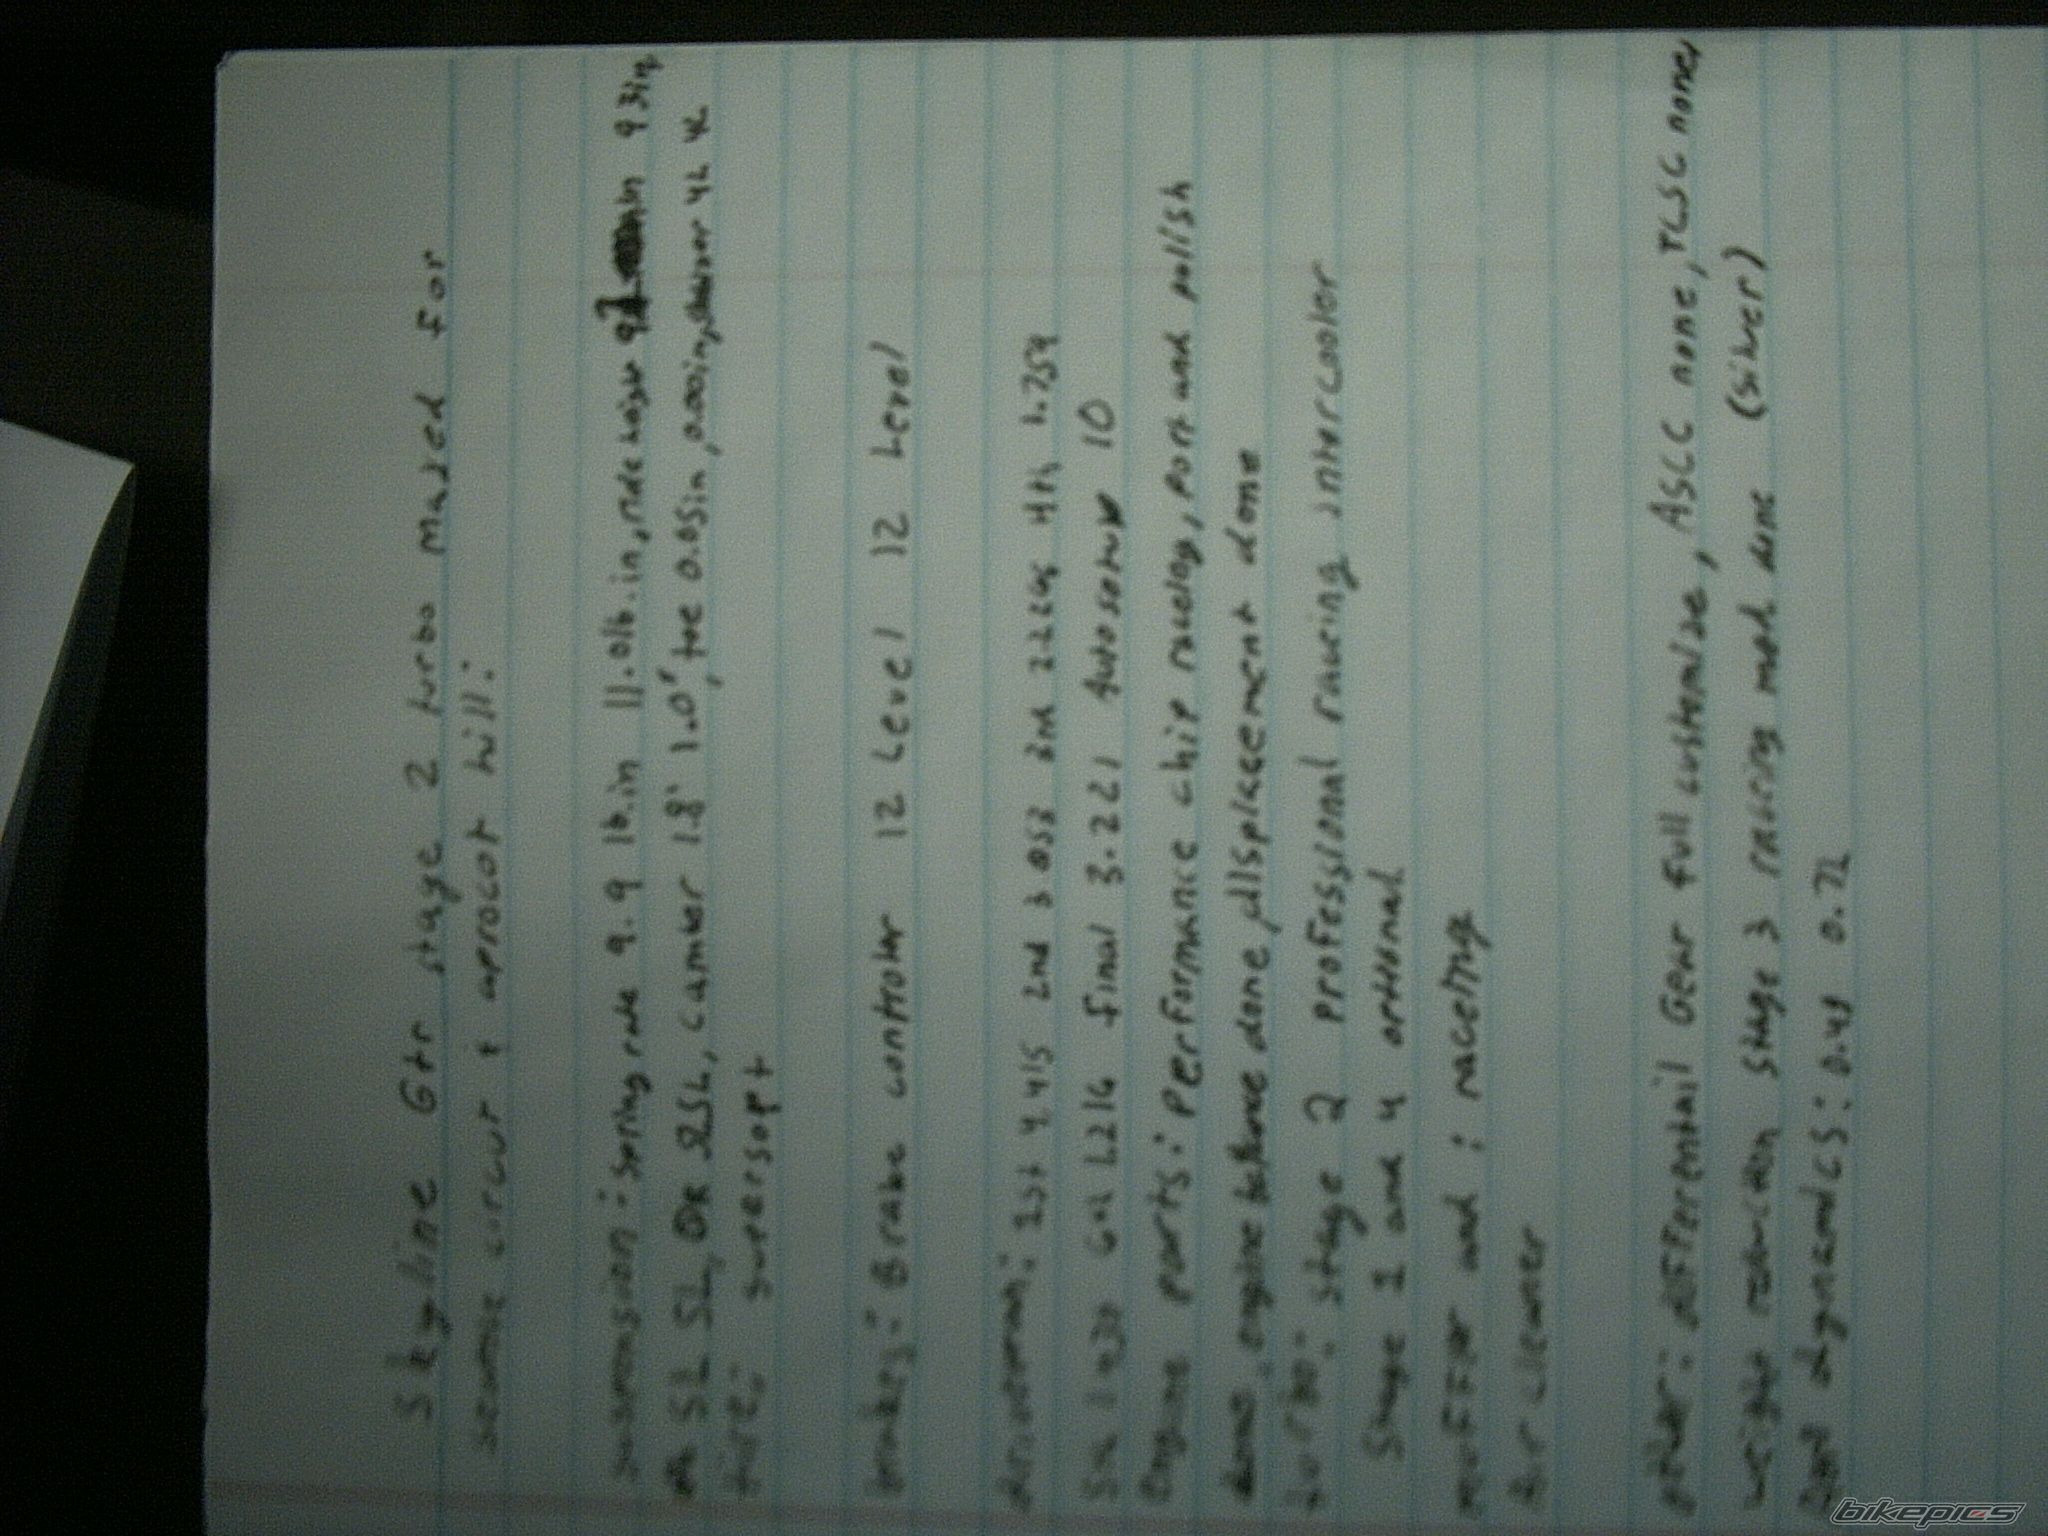 Skyline Gtr stage 2 turbo mazed for
circut & aprocot hill:
suspension: spring rate 9.9 lb.in 11.0lb.in, ride height 9 3in
SL SL, DR 2SL, camber 1.8° 1.0°, toe 0.05in, 0.00in, 4L 4L
tire: supersopt
brakes: Brake controler 12 Level 12 Level
drivetrain: 1st 4.415 2nd 3.053 3rd 4th 1.759
5th 6th final 3.221 Autosetup 10
Engine parts: performance chip raceing, port and polish
done, engine balance done, displaceement done
turbo: stage 2 professional raucing intercooler
stage 1 and 4 optional
muffler and : raceing
air cleaner
other: differentail Gear full customize, ASCC none, TCSC none,
weight reduction stage 3 racing mod done (silver)
dynamics: 0.72
bikepics